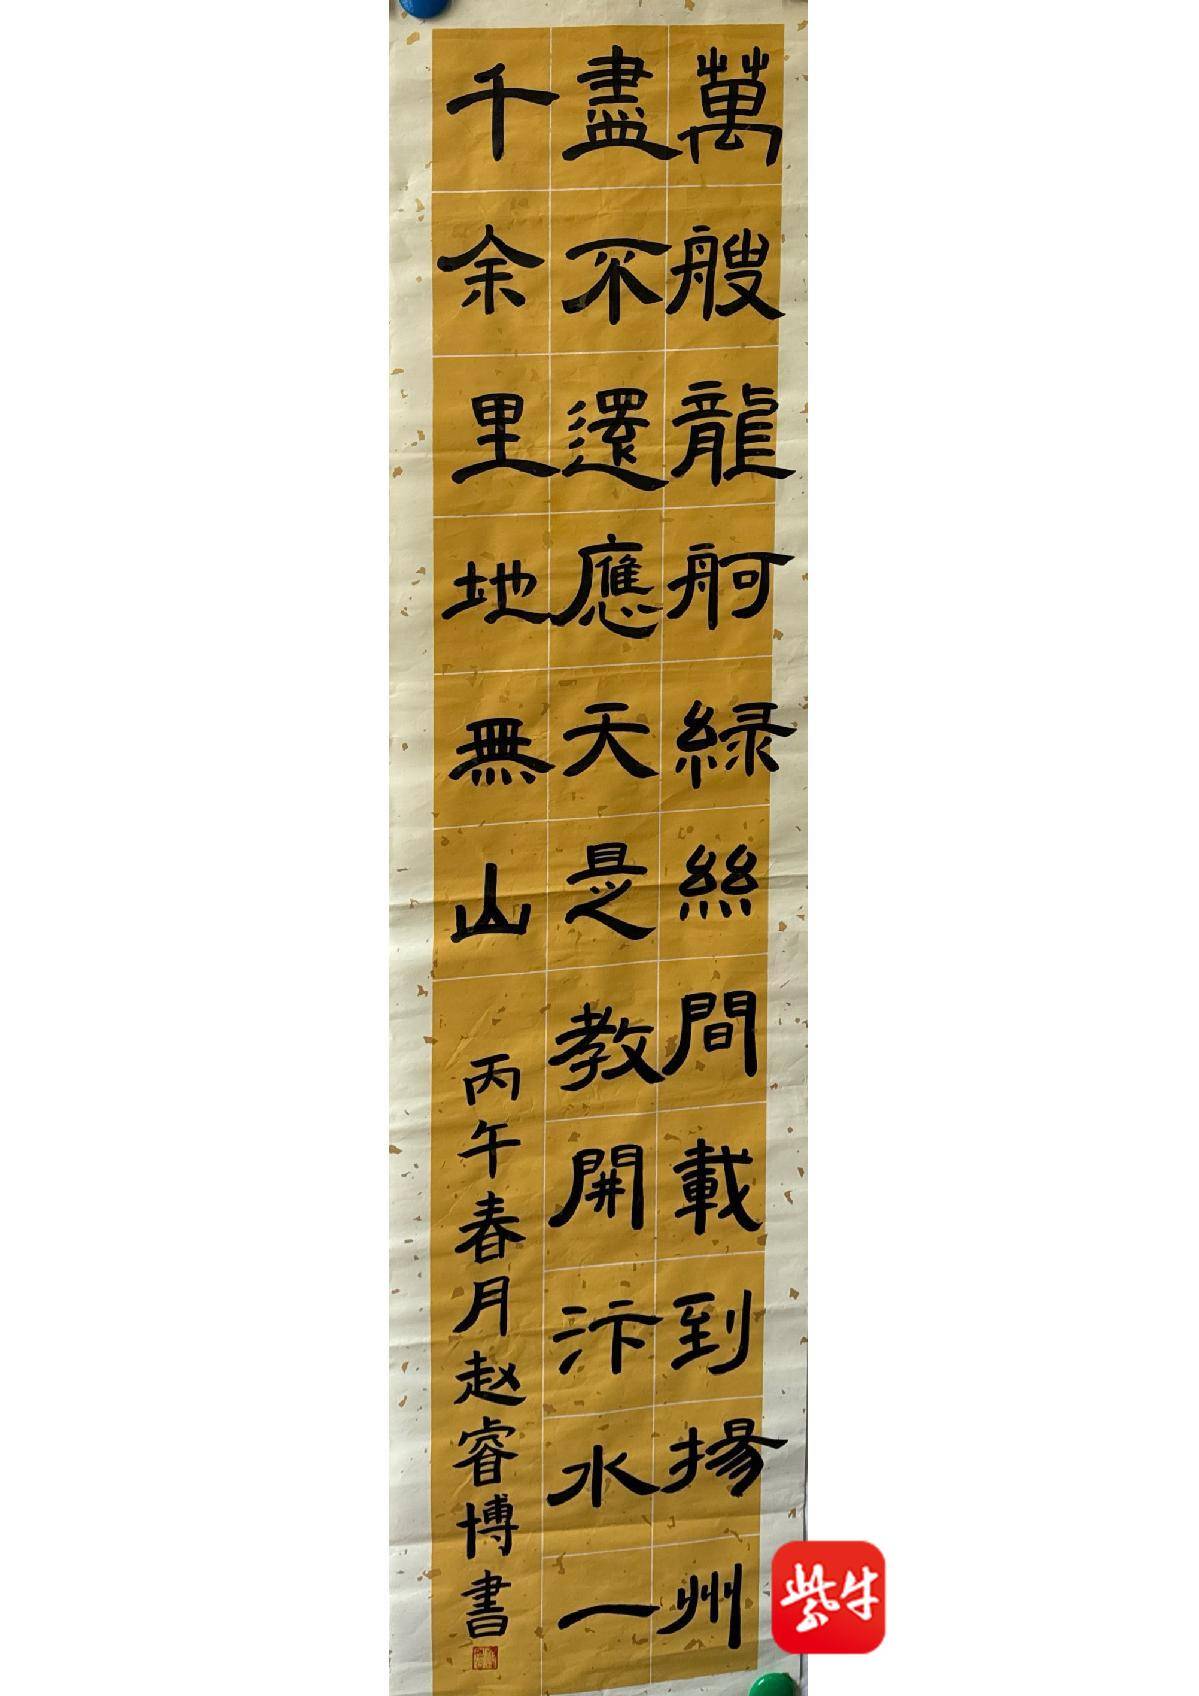 萬艘龍舸緑絲間載到揚州
盡不還應天是教開汴水一
千余里地無山
丙午春月赵睿博書
紫牛